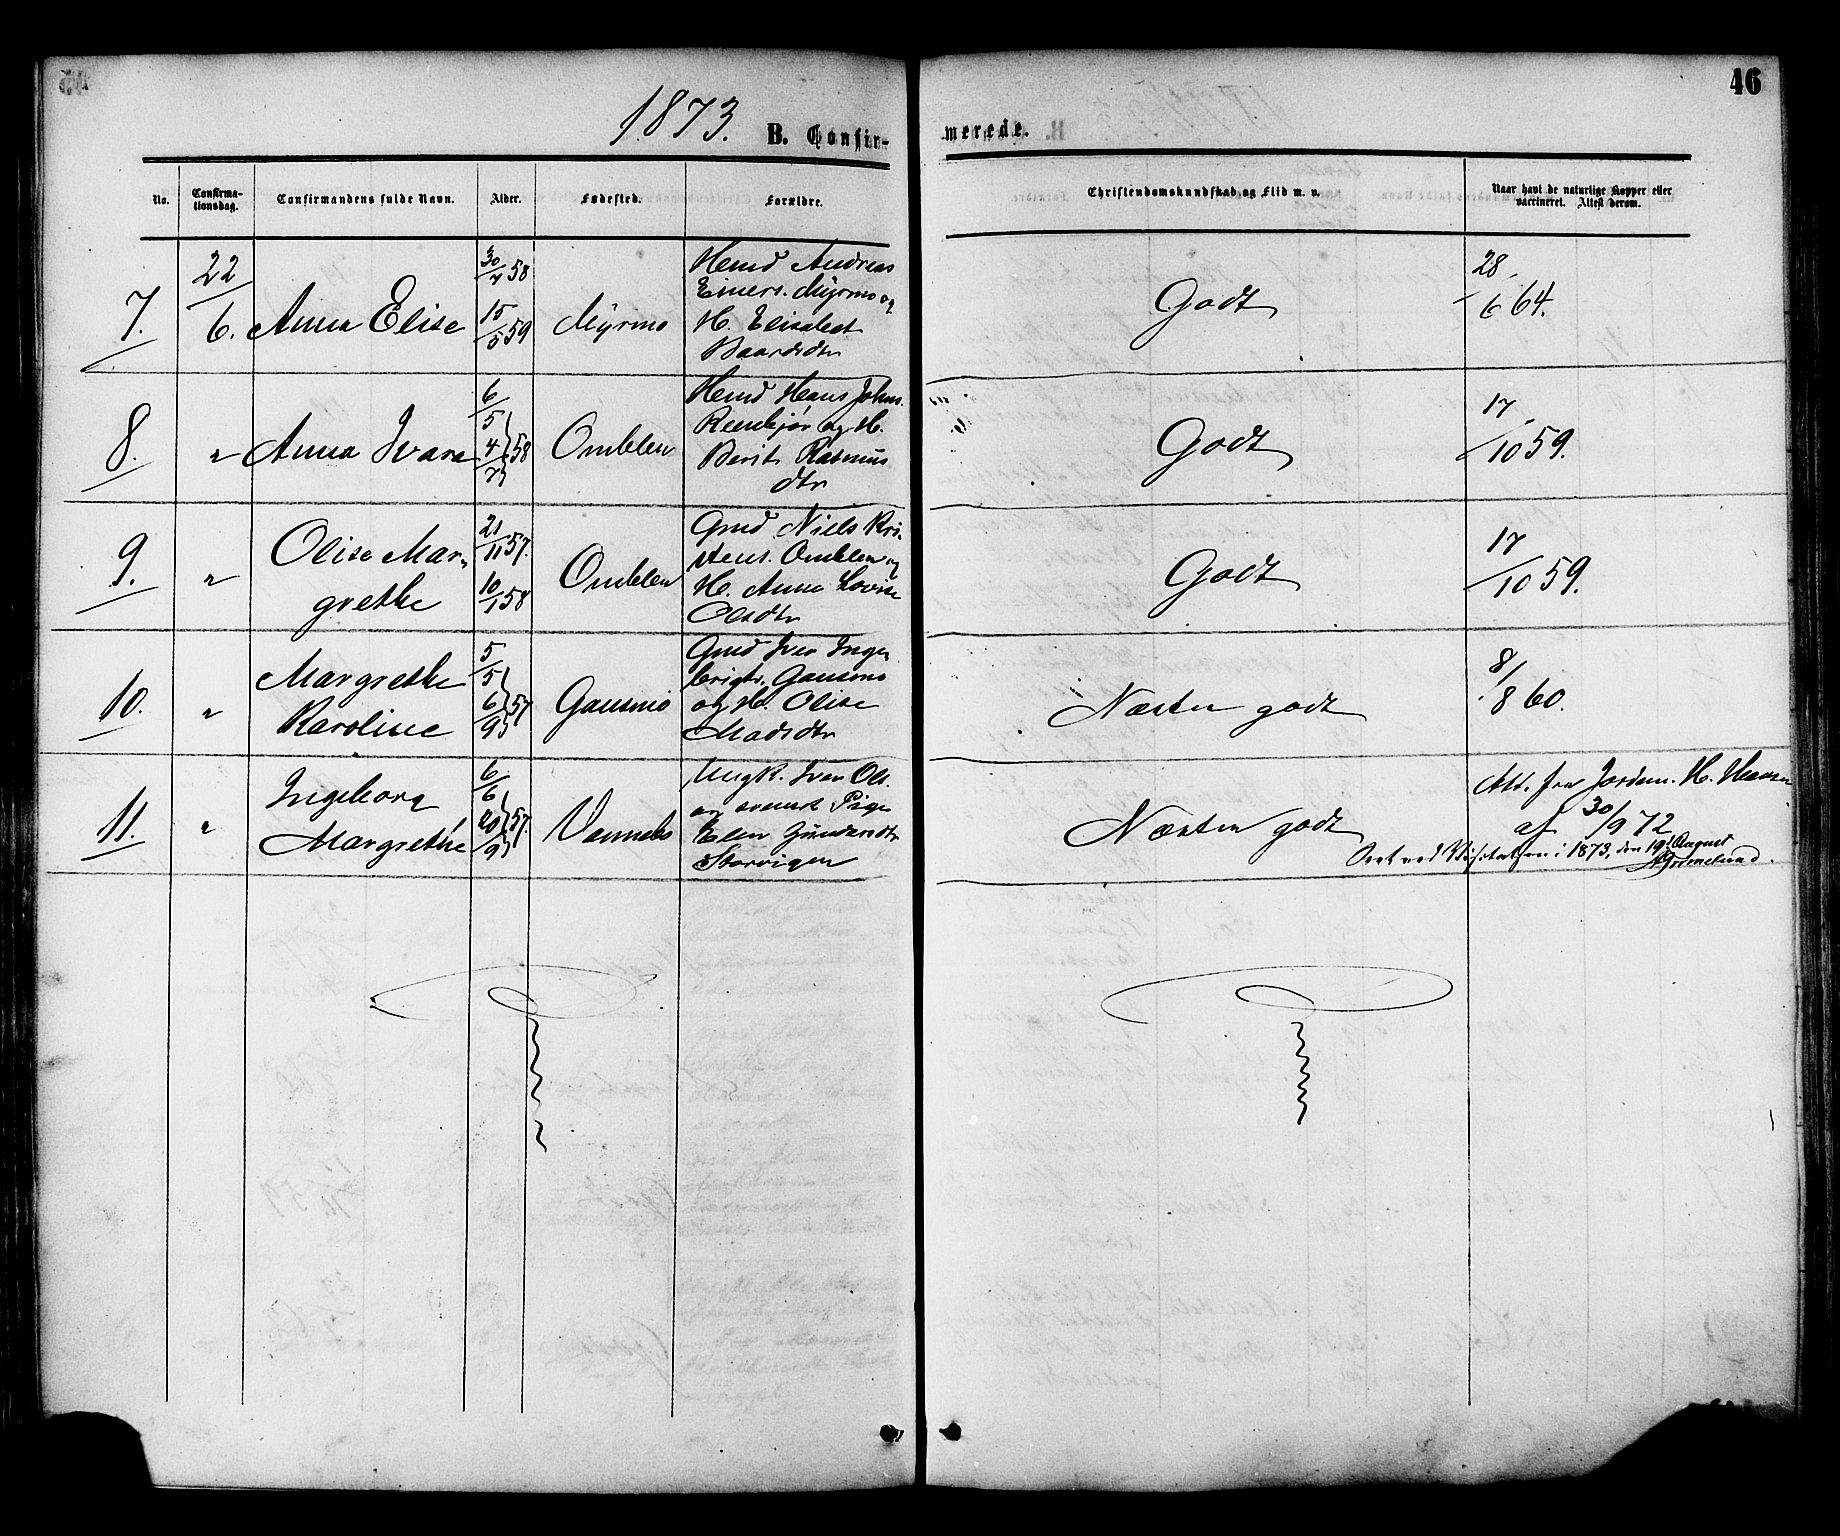 46
1873. B. Confir-
merede.
No.
Confirma-
tionsdag.
Confirmandens fulde Navn.
Alder.
Fødested.
Forældre.
Christendomskundskab og Flid m. v.
Naar havt de naturlige Kopper eller
vaccineret. Attest derom.
7.
22/6.
Anna Elise
30/4 58
15/5 59
Myrmo
Hmd Andreas
Einers. Myrmo og
H. Elisabet
Baardsdtr
Godt
28/6 64.
8.
"
Anna Ivara
6/5
4/7 } 58
Omblen
Hmd Hans Johns.
og H.
Berit Rasmus
dtr
Godt
17/10 59.
9.
"
Olise Mar-
grethe
21/11 57.
10/1 58
Omblen
Gmd Niels Kri-
stens. Omblen og
H. Anna Lovise
Olsdtr
Godt
17/10 59.
10.
"
Margrethe
Karoline
5/5
6/9 } 57
Gausmo
Gmd Iver Inge
brigts. Gausmo
og H. Olise
Madsdtr
Næsten godt
8/8 60.
11.
"
Ingeborg
Margrethe
6/6
20/9 } 57.
Vennebo
Ungk. Iver Ols.
og svensk Pige
Elen Gundersdtr
Storvigen
Næsten godt
Att. fra Jordem. H. Hansen
af 30/9 72
Seet ved Visitatsen i 1873, den 19de August
Grimelund.